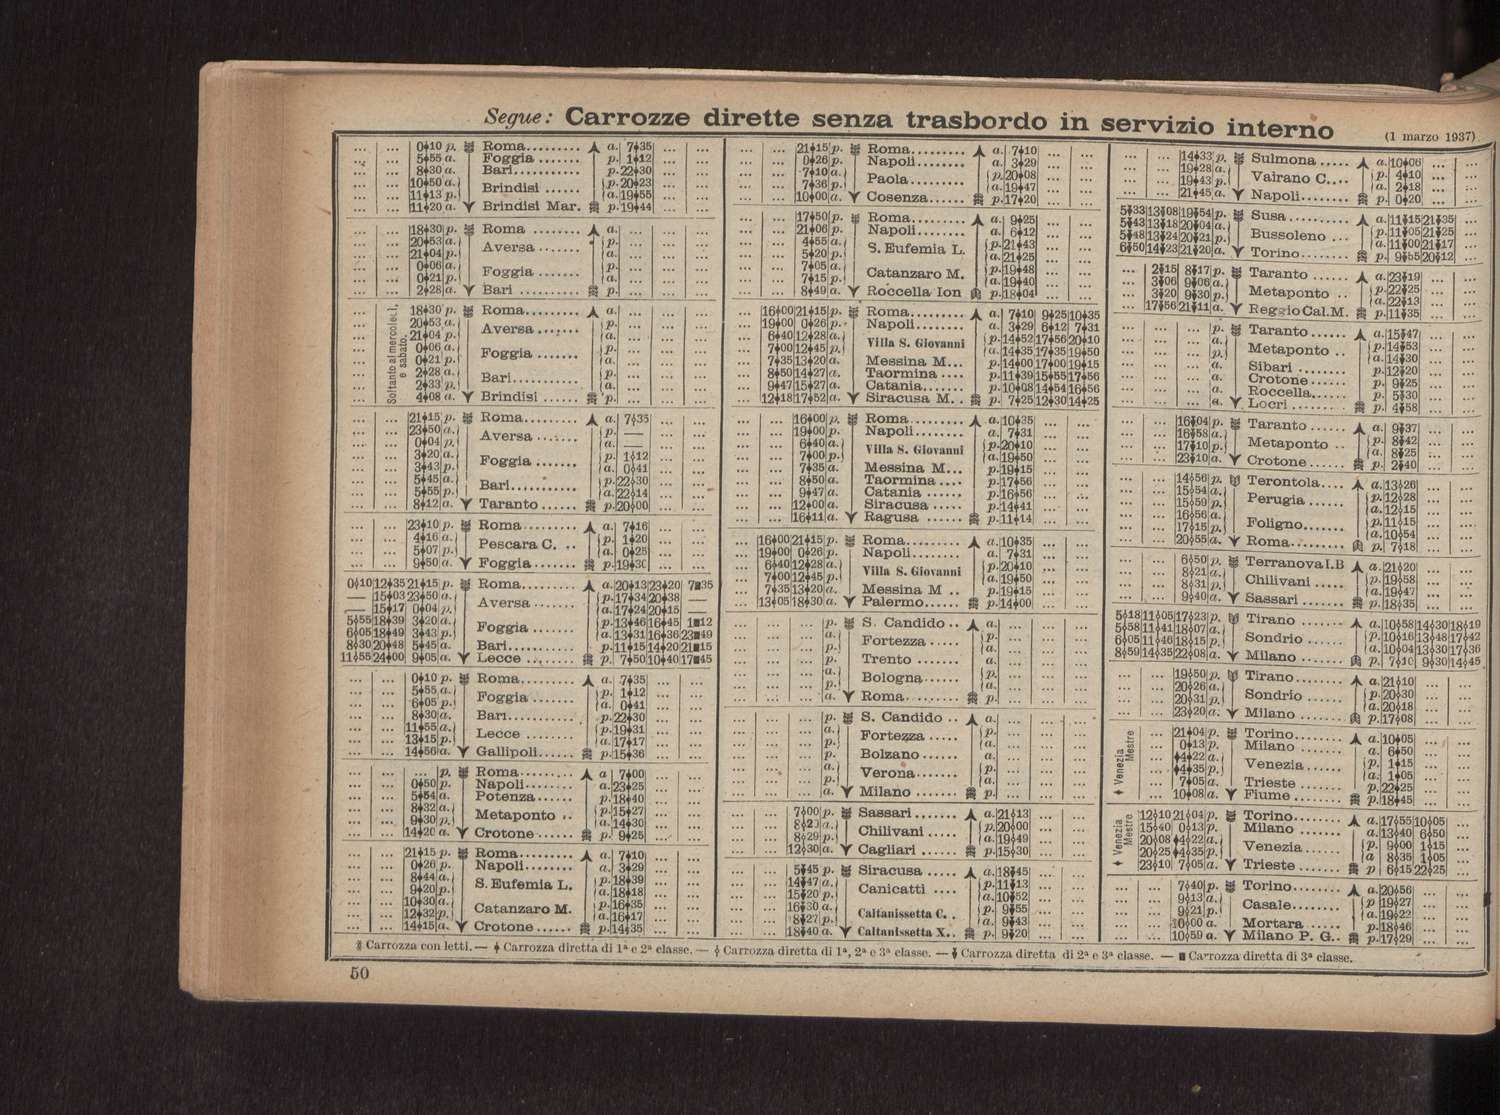 Segue: Carrozze dirette senza trasbordo in servizio interno (1 marzo 1937)
0 10 p. Roma a. 7 35
5 55 a. Foggia p. 1 12
8 30 a. Bari p. 22 30
10 50 a. Brindisi p. 20 23
11 13 p. a. 19 55
11 20 a. Brindisi Mar. p. 19 44
18 30 p. Roma a.
20 53 a. Aversa p.
21 04 p. a.
0 06 a. Foggia p.
0 21 p. a.
2 28 a. Bari p.
Soltanto al mercoledì e sabato.
18 30 p. Roma a.
20 53 a. Aversa p.
21 04 p. a.
0 06 a. Foggia p.
0 21 p. a.
2 28 a. Bari p.
2 33 p. a.
4 08 a. Brindisi p.
21 15 p. Roma a. 7 35
23 50 a. Aversa p. —
0 04 p. a. —
3 20 a. Foggia p. 1 12
3 43 p. a. 0 41
5 45 a. Bari p. 22 30
5 55 p. a. 22 14
8 12 a. Taranto p. 20 00
23 10 p. Roma a. 7 16
4 16 a. Pescara C. p. 1 20
5 07 p. a. 0 25
9 50 a. Foggia p. 19 30
0 10 12 35 21 15 p. Roma a. 20 13 23 20 7 35
— 15 03 23 50 a. Aversa p. 17 34 20 38 —
— 15 17 0 04 p. a. 17 24 20 15 —
5 55 18 39 3 20 a. Foggia p. 13 46 16 45 1 12
6 05 18 49 3 43 p. a. 13 31 16 36 23 49
8 30 20 48 5 45 a. Bari p. 11 15 14 20 21 15
11 55 24 00 9 05 a. Lecce p. 7 50 10 40 17 45
0 10 p. Roma a. 7 35
5 55 a. Foggia p. 1 12
6 05 p. a. 0 41
8 30 a. Bari p. 22 30
11 55 a. Lecce p. 19 31
13 15 p. a. 17 17
14 56 a. Gallipoli p. 15 36
p. Roma a. 7 00
0 50 p. Napoli a. 23 25
5 54 a. Potenza p. 18 40
8 32 a. Metaponto p. 15 27
9 30 p. a. 14 30
14 20 a. Crotone p. 9 25
21 15 p. Roma a. 7 10
0 26 p. Napoli a. 3 29
8 44 a. S. Eufemia L. p. 18 39
9 20 p. a. 18 18
10 30 a. Catanzaro M. p. 16 35
12 32 p. a. 16 17
14 15 a. Crotone p. 14 35
21 15 p. Roma a. 7 10
0 26 p. Napoli a. 3 29
7 10 a. Paola p. 20 08
7 36 p. a. 19 47
10 00 a. Cosenza p. 17 20
17 50 p. Roma a. 9 25
21 06 p. Napoli a. 6 12
4 55 a. S. Eufemia L. p. 21 43
5 20 p. a. 21 25
7 05 a. Catanzaro M. p. 19 48
7 15 p. a. 19 40
8 49 a. Roccella Ion p. 18 04
16 00 21 15 p. Roma a. 7 10 9 25 10 35
19 00 0 26 p. Napoli a. 3 29 6 12 7 31
6 40 12 28 a. Villa S. Giovanni p. 14 52 17 56 20 10
7 00 12 45 p. a. 14 35 17 35 19 50
7 35 13 20 a. Messina M. p. 14 00 17 00 19 15
8 50 14 27 a. Taormina p. 11 39 15 55 17 56
9 47 15 27 a. Catania p. 10 08 14 54 16 56
12 18 17 52 a. Siracusa M. p. 7 25 12 30 14 25
16 00 p. Roma a. 10 35
19 00 p. Napoli a. 7 31
6 40 a. Villa S. Giovanni p. 20 10
7 00 p. a. 19 50
7 35 a. Messina M. p. 19 15
8 50 a. Taormina p. 17 56
9 47 a. Catania p. 16 56
12 00 a. Siracusa p. 14 41
16 11 a. Ragusa p. 11 14
16 00 21 15 p. Roma a. 10 35
19 00 0 26 p. Napoli a. 7 31
6 40 12 28 a. Villa S. Giovanni p. 20 10
7 00 12 45 p. a. 19 50
7 35 13 20 a. Messina M p. 19 15
13 05 18 30 a. Palermo p. 14 00
p. S. Candido a.
Fortezza
Trento
Bologna
a. Roma p.
p. S. Candido a.
Fortezza
Bolzano
Verona
a. Milano p.
7 00 p. Sassari a. 21 13
a. Chilivani p. 20 00
8 29 p. a. 19 49
12 30 a. Cagliari p. 15 30
5 45 p. Siracusa a. 18 45
14 47 a. Canicatti p. 11 13
15 20 p. a. 10 52
16 30 a. Caltanissetta C. p. 9 55
8 27 p. a. 9 43
18 40 a. Caltanissetta X. p. 9 20
14 33 p. Sulmona a. 10 06
19 28 a. Vairano C. p. 4 10
19 43 p. a. 2 18
21 45 a. Napoli p. 0 20
5 33 13 08 19 54 p. Susa a. 11 15 21 35
5 43 13 18 20 04 a. Bussoleno p. 11 05 21 25
5 48 13 24 20 21 p. a. 11 00 21 17
6 50 14 23 21 20 a. Torino p. 9 55 20 12
2 15 8 17 p. Taranto a. 23 19
3 06 9 06 a. Metaponto p. 22 25
3 20 9 30 p. a. 22 13
17 56 21 11 a. Reggio Cal. M. p. 11 35
p. Taranto a. 15 47
a. Metaponto p. 14 53
p. a. 14 30
a. Sibari p. 12 20
Crotone p. 9 25
Roccella p. 5 30
a. Locri p. 4 58
16 04 p. Taranto a. 9 37
16 58 a. Metaponto p. 8 42
17 10 p. a. 8 25
23 10 a. Crotone p. 2 40
14 56 p. Terontola a. 13 26
15 54 a. Perugia p. 12 28
15 59 p. a. 12 15
16 56 a. Foligno p. 11 15
17 15 p. a. 10 54
20 55 a. Roma p. 7 18
6 50 p. Terranova I. B a. 21 20
8 21 a. Chilivani p. 19 58
8 31 p. a. 19 47
9 40 a. Sassari p. 18 35
5 18 11 05 17 23 p. Tirano a. 10 58 14 30 18 19
5 58 11 41 18 07 a. Sondrio p. 10 16 13 48 17 42
6 05 11 46 18 15 p. a. 10 04 13 30 17 36
8 59 14 35 22 08 a. Milano p. 7 10 9 30 14 45
19 50 p. Tirano a. 21 10
20 26 a. Sondrio p. 20 30
20 31 p. a. 20 18
23 20 a. Milano p. 17 08
♦ Venezia Mestre
21 04 p. Torino a. 10 05
0 13 p. Milano a. 6 50
♦4 22 a. Venezia p. 1 15
♦4 35 p. a. 1 05
7 05 a. Trieste p. 22 25
10 08 a. Fiume p. 18 45
♦ Venezia Mestre
12 10 21 04 p. Torino a. 17 55 10 05
15 40 0 13 p. Milano a. 13 40 6 50
20 08 ♦4 22 a. Venezia p. 9 00 1 15
20 25 ♦4 35 p. a 8 35 1 05
23 10 7 05 a. Trieste p 6 15 22 25
7 40 p. Torino a. 20 56
9 13 a. Casale p. 19 27
9 21 p. a. 19 22
10 00 a. Mortara p. 18 46
10 59 a. Milano P. G. p. 17 29
Carrozza con letti. — Carrozza diretta di 1ª e 2ª classe. — Carrozza diretta di 1ª, 2ª e 3ª classe. — Carrozza diretta di 2ª e 3ª classe. — ■ Carrozza diretta di 3ª classe.
50